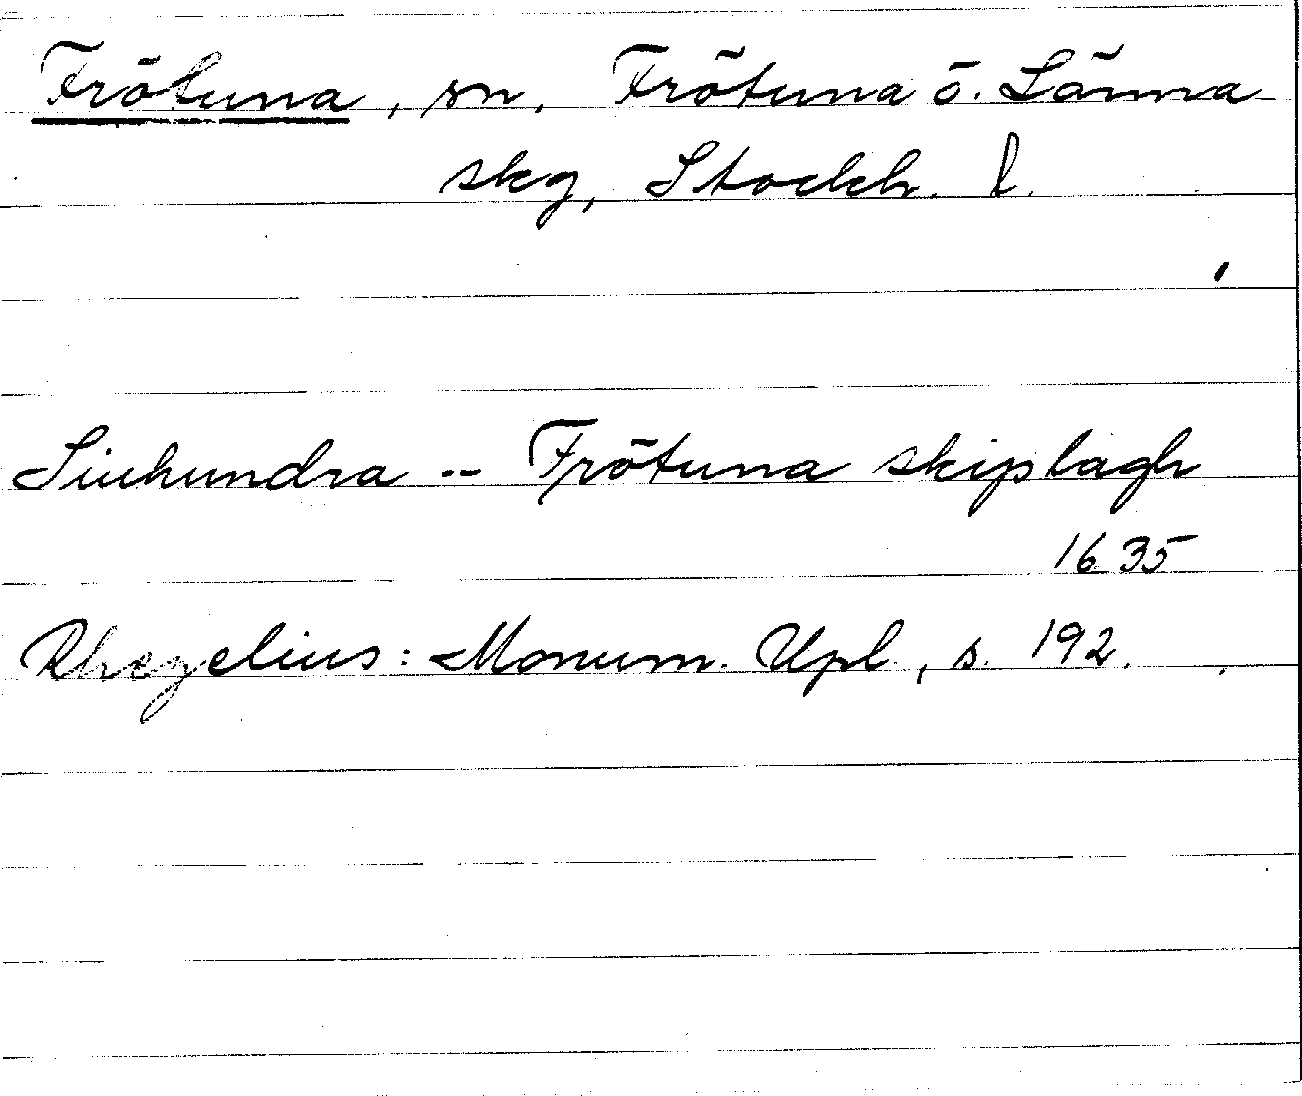 Frötuna, sn, Frötuna o. Länna
skg, Stockh. l.
Siuhundra -- Frötuna skiplagh
1635
Rhezelius: Monum. Upl., s. 192.